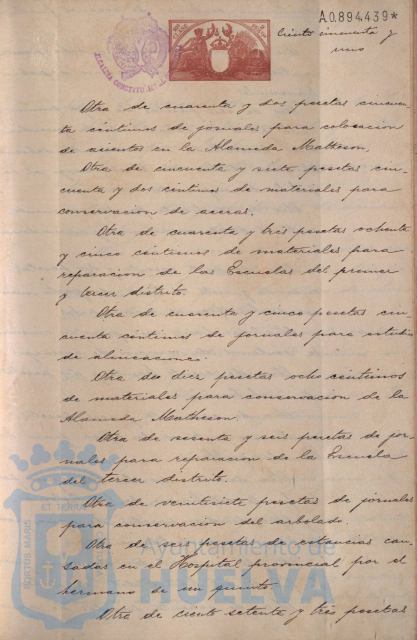 A0.894.439*
Ciento cincuenta y
uno
Otra de cuarenta y dos pesetas cincuen-
ta céntimos de jornales para colocacion
de asientos en la Alameda Matheson.
Otra de cincuenta y siete pesetas cin-
cuenta y dos céntimos de materiales para
conservacion de aceras.
Otra de cuarenta y tres pesetas ochenta
y cinco centimos de materiales para
reparacion de las Escuelas del primer
y tercer distrito.
Otra de cuarenta y cinco pesetas cin-
cuenta céntimos de jornales para estudio
de alineacione.
Otra de diez pesetas ocho céntimos
de materiales para conservacion de la
Alameda Matheson.
Otra de sesenta y seis pesetas de jor-
nales para reparacion de la Escuela
del tercer distrito.
Otra de veintisiete pesetas de jornales
para conservacion del arbolado.
Otra de seis pesetas de estancias cau-
sadas en el Hospital provincial por el
hermano de un
Otra de ciento setenta y tres pesetas
PORTUS MARIS ET TERRAE
Ayuntamiento de
HUELVA